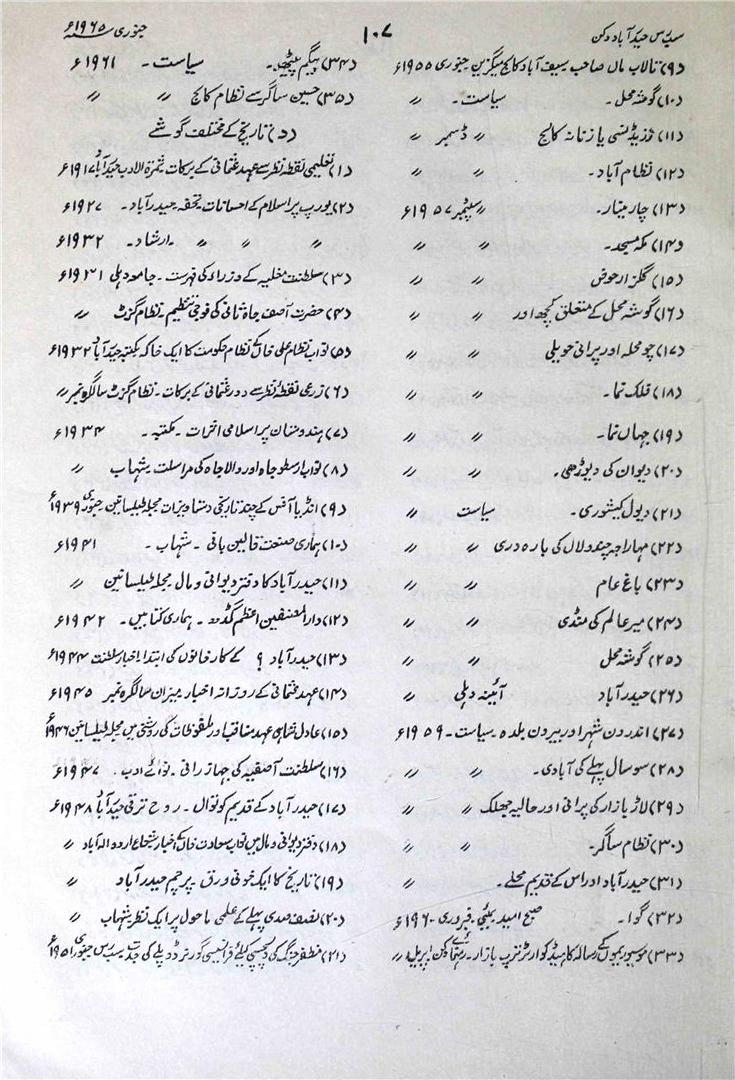 سب رس حیدرآباد دکن
۱۰۷
جنوری ۱۹۶۵ء
(۹) تالاب ماں صاحب سیف آباد کالج میگزین جنوری ۱۹۵۵ء
(۱۰) گوشہ محل۔ سیاست۔ 〃
(۱۱) رزیڈنسی یا زنانہ کالج 〃 ڈسمبر 〃
(۱۲) نظام آباد۔ 〃 〃
(۱۳) چار مینار۔ 〃 سپٹمبر ۱۹۵۷ء
(۱۴) مکہ مسجد۔ 〃 〃
(۱۵) گلزار حوض 〃 〃
(۱۶) گوشہ محل کے متعلق کچھ اور 〃 〃
(۱۷) چو محلہ اور پرانی حویلی 〃 〃
(۱۸) فلک نما۔ 〃 〃
(۱۹) جہاں نما۔ 〃 〃
(۲۰) دیوان کی دیوڑھی۔ 〃 〃
(۲۱) دیول کیشوری۔ سیاست 〃
(۲۲) مہاراجہ چندولال کی بارہ دری 〃 〃
(۲۳) باغ عام 〃 〃
(۲۴) میر عالم کی منڈی 〃 〃
(۲۵) گوشہ محل 〃 〃
(۲۶) حیدرآباد آئینہ دہلی 〃
(۲۷) اندرون شہر اور بیرون بلدہ۔ سیاست۔ ۱۹۵۹ء
(۲۸) سو سال پہلے کی آبادی۔ 〃 〃
(۲۹) لاڑ بازار کی پرانی اور حالیہ جھلک 〃 〃
(۳۰) نظام ساگر۔ 〃 〃
(۳۱) حیدرآباد اور اس کے قدیم محلے۔ 〃
(۳۲) گوا۔ صبح امید بمبئی۔ فروری ۱۹۶۰ء
(۳۳) موسیوریموں کے رسالہ کا ہیڈ کوارٹر ترپ بازار۔ رہنمائے دکن اپریل 〃
(۳۴) بیگم پیٹھ۔ سیاست۔ ۱۹۶۱ء
(۳۵) حسین ساگر سے نظام کالج 〃 〃
(د) تاریخ کے مختلف گوشے
(۱) تعلیمی نقطہ نظر سے عہد عثمانی کے برکات ثمرۃ الادب حیدرآباد ۱۹۱۷ء
(۲) یورپ پر اسلام کے احسانات تحفہ حیدرآباد۔ ۱۹۲۷ء
〃 〃 〃 ارشاد۔ ۱۹۳۲ء
(۳) سلطنت مغلیہ کے وزراء کی فہرست۔ جامعہ دہلی ۱۹۳۱ء
(۴) حضرت آصف جاہ ثانی کی فوجی تنظیم۔ نظام گزٹ 〃
(۵) نواب نظام علی خاں کے نظام حکومت کا ایک خاکہ مکتبہ حیدرآباد ۱۹۳۲ء
(۶) زرعی نقطہ نظر سے دور عثمانی کے برکات۔ نظام گزٹ سالگرہ نمبر 〃
(۷) ہندوستان پر اسلامی اثرات۔ مکتبہ۔ ۱۹۳۴ء
(۸) نواب ارسطو جاہ اور والا جاہ کی مراسلت شہاب 〃
(۹) انڈیا آفس کے چند تاریخی دستاویزات مجلہ طیلسانین جنوری ۱۹۳۹ء
(۱۰) ہماری صنعت قالین بافی۔ شہاب۔ ۱۹۴۱ء
(۱۱) حیدرآباد کا دفتر دیوانی و مال مجلہ طیلسانین 〃
(۱۲) دار المصنفین اعظم گڈھ۔ ہماری کتابیں۔ ۱۹۴۲ء
(۱۳) حیدرآباد ؟ کے کارخانوں کی ابتداء اخبار سلطنت ۱۹۴۴ء
(۱۴) عہد عثمانی کے روزانہ اخبار میزان سالگرہ نمبر ۱۹۴۵ء
(۱۵) عادل شاہی عہد مناقب اور ملفوظات کی روشنی میں مجلہ طیلسانین ۱۹۴۶ء
(۱۶) سلطنت آصفیہ کی جہاز رانی۔ نوائے ادب۔ ۱۹۴۷ء
(۱۷) حیدرآباد کے قدیم کوتوال۔ روح ترقی حیدرآباد ۱۹۴۸ء
(۱۸) دفتر دیوانی و مال میں نواب سعادت خاں کے اخبار شجاع اردو الہ آباد 〃
(۱۹) تاریخ کا ایک خونی ورق۔ پرچم حیدرآباد 〃
(۲۰) نصف صدی پہلے کے علمی ماحول پر ایک نظر شہاب 〃
(۲۱) مظفر جنگ کی دلچسپی کیلئے فرانسیسی گورنر ڈوپلے کی جدت سب رس جنوری ۱۹۵۱ء